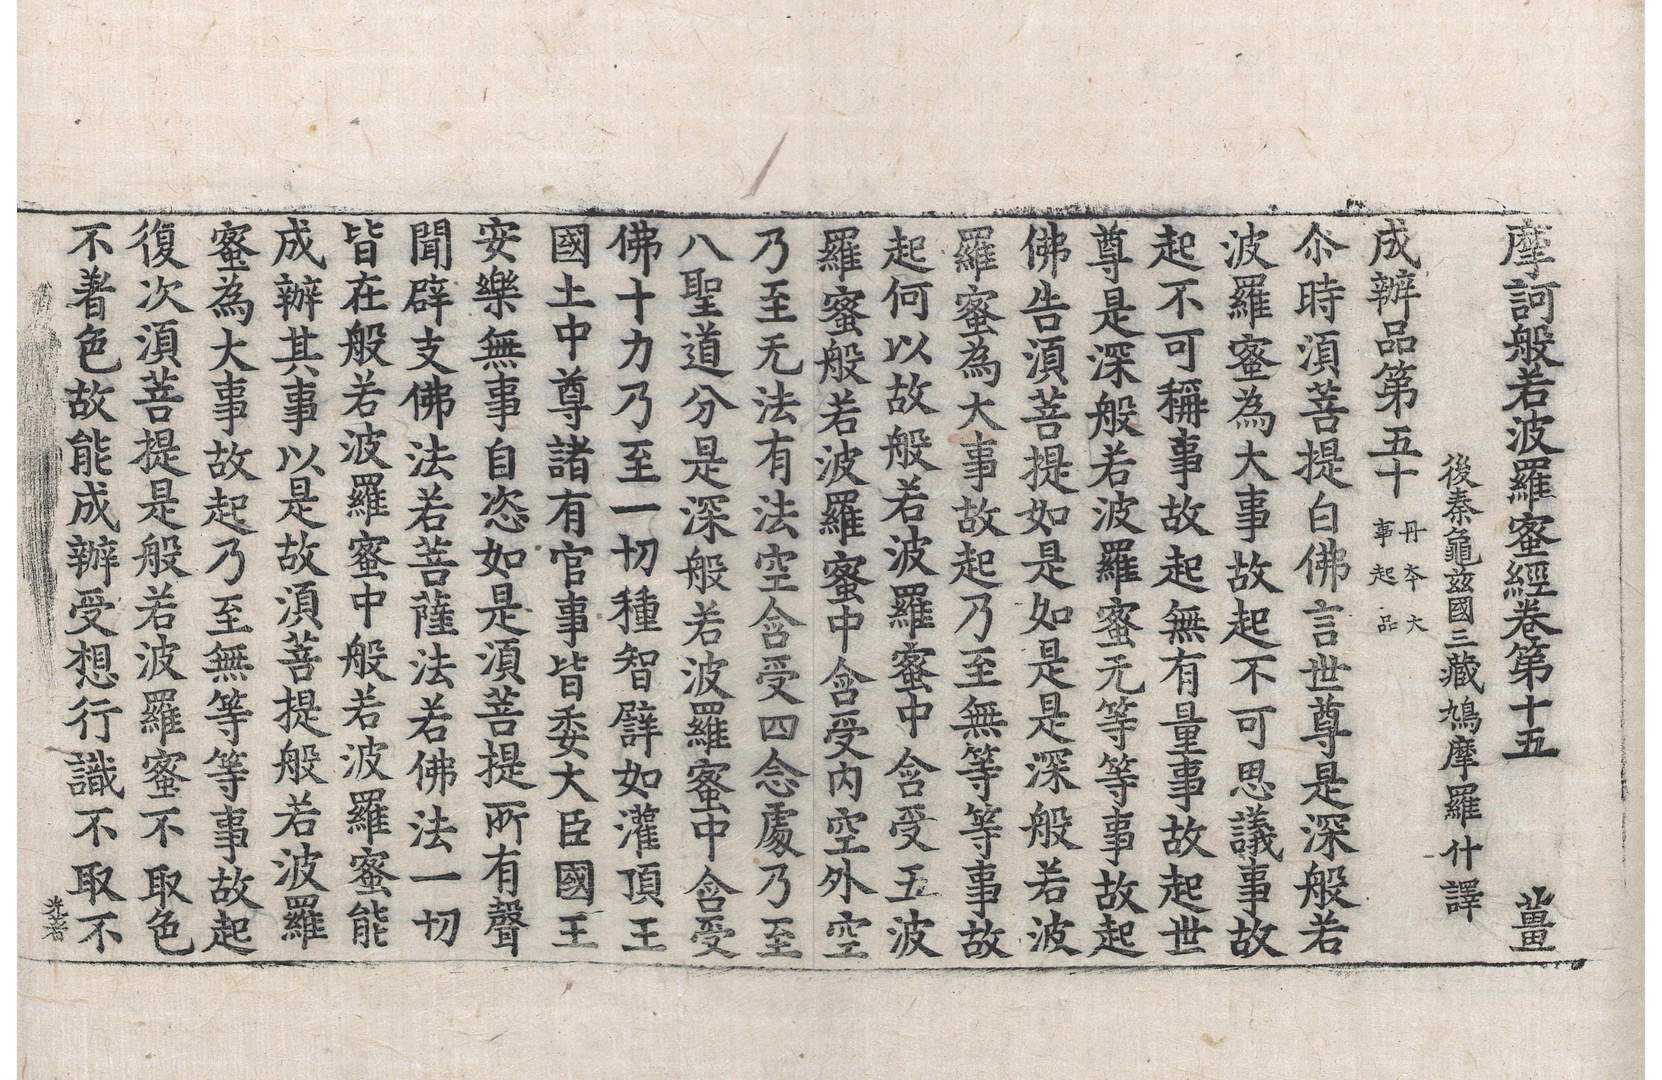 摩訶般若波羅蜜經卷第十五 薑
後秦龜茲國三藏鳩摩羅什譯
成辦品第五十 丹夲大事起品
尒時湏菩提白佛言世尊是深般若
波羅蜜為大事故起不可思議事故
起不可稱事故起無有量事故起世
尊是深般若波羅蜜无等等事故起
佛告湏菩提如是如是是深般若波
羅蜜為大事故起乃至無等等事故
起何以故般若波羅蜜中含受五波
羅蜜般若波羅蜜中含受内空外空
乃至无法有法空含受四念處乃至
八聖道分是深般若波羅蜜中含受
佛十力乃至一切種智譬如灌頂王
國土中尊諸有官事皆委大臣國王
安樂無事自恣如是湏菩提所有聲
聞辟支佛法若菩薩法若佛法一切
皆在般若波羅蜜中般若波羅蜜能
成辦其事以是故湏菩提般若波羅
蜜為大事故起乃至無等等事故起
復次湏菩提是般若波羅蜜不取色
不著色故能成辦受想行識不取不